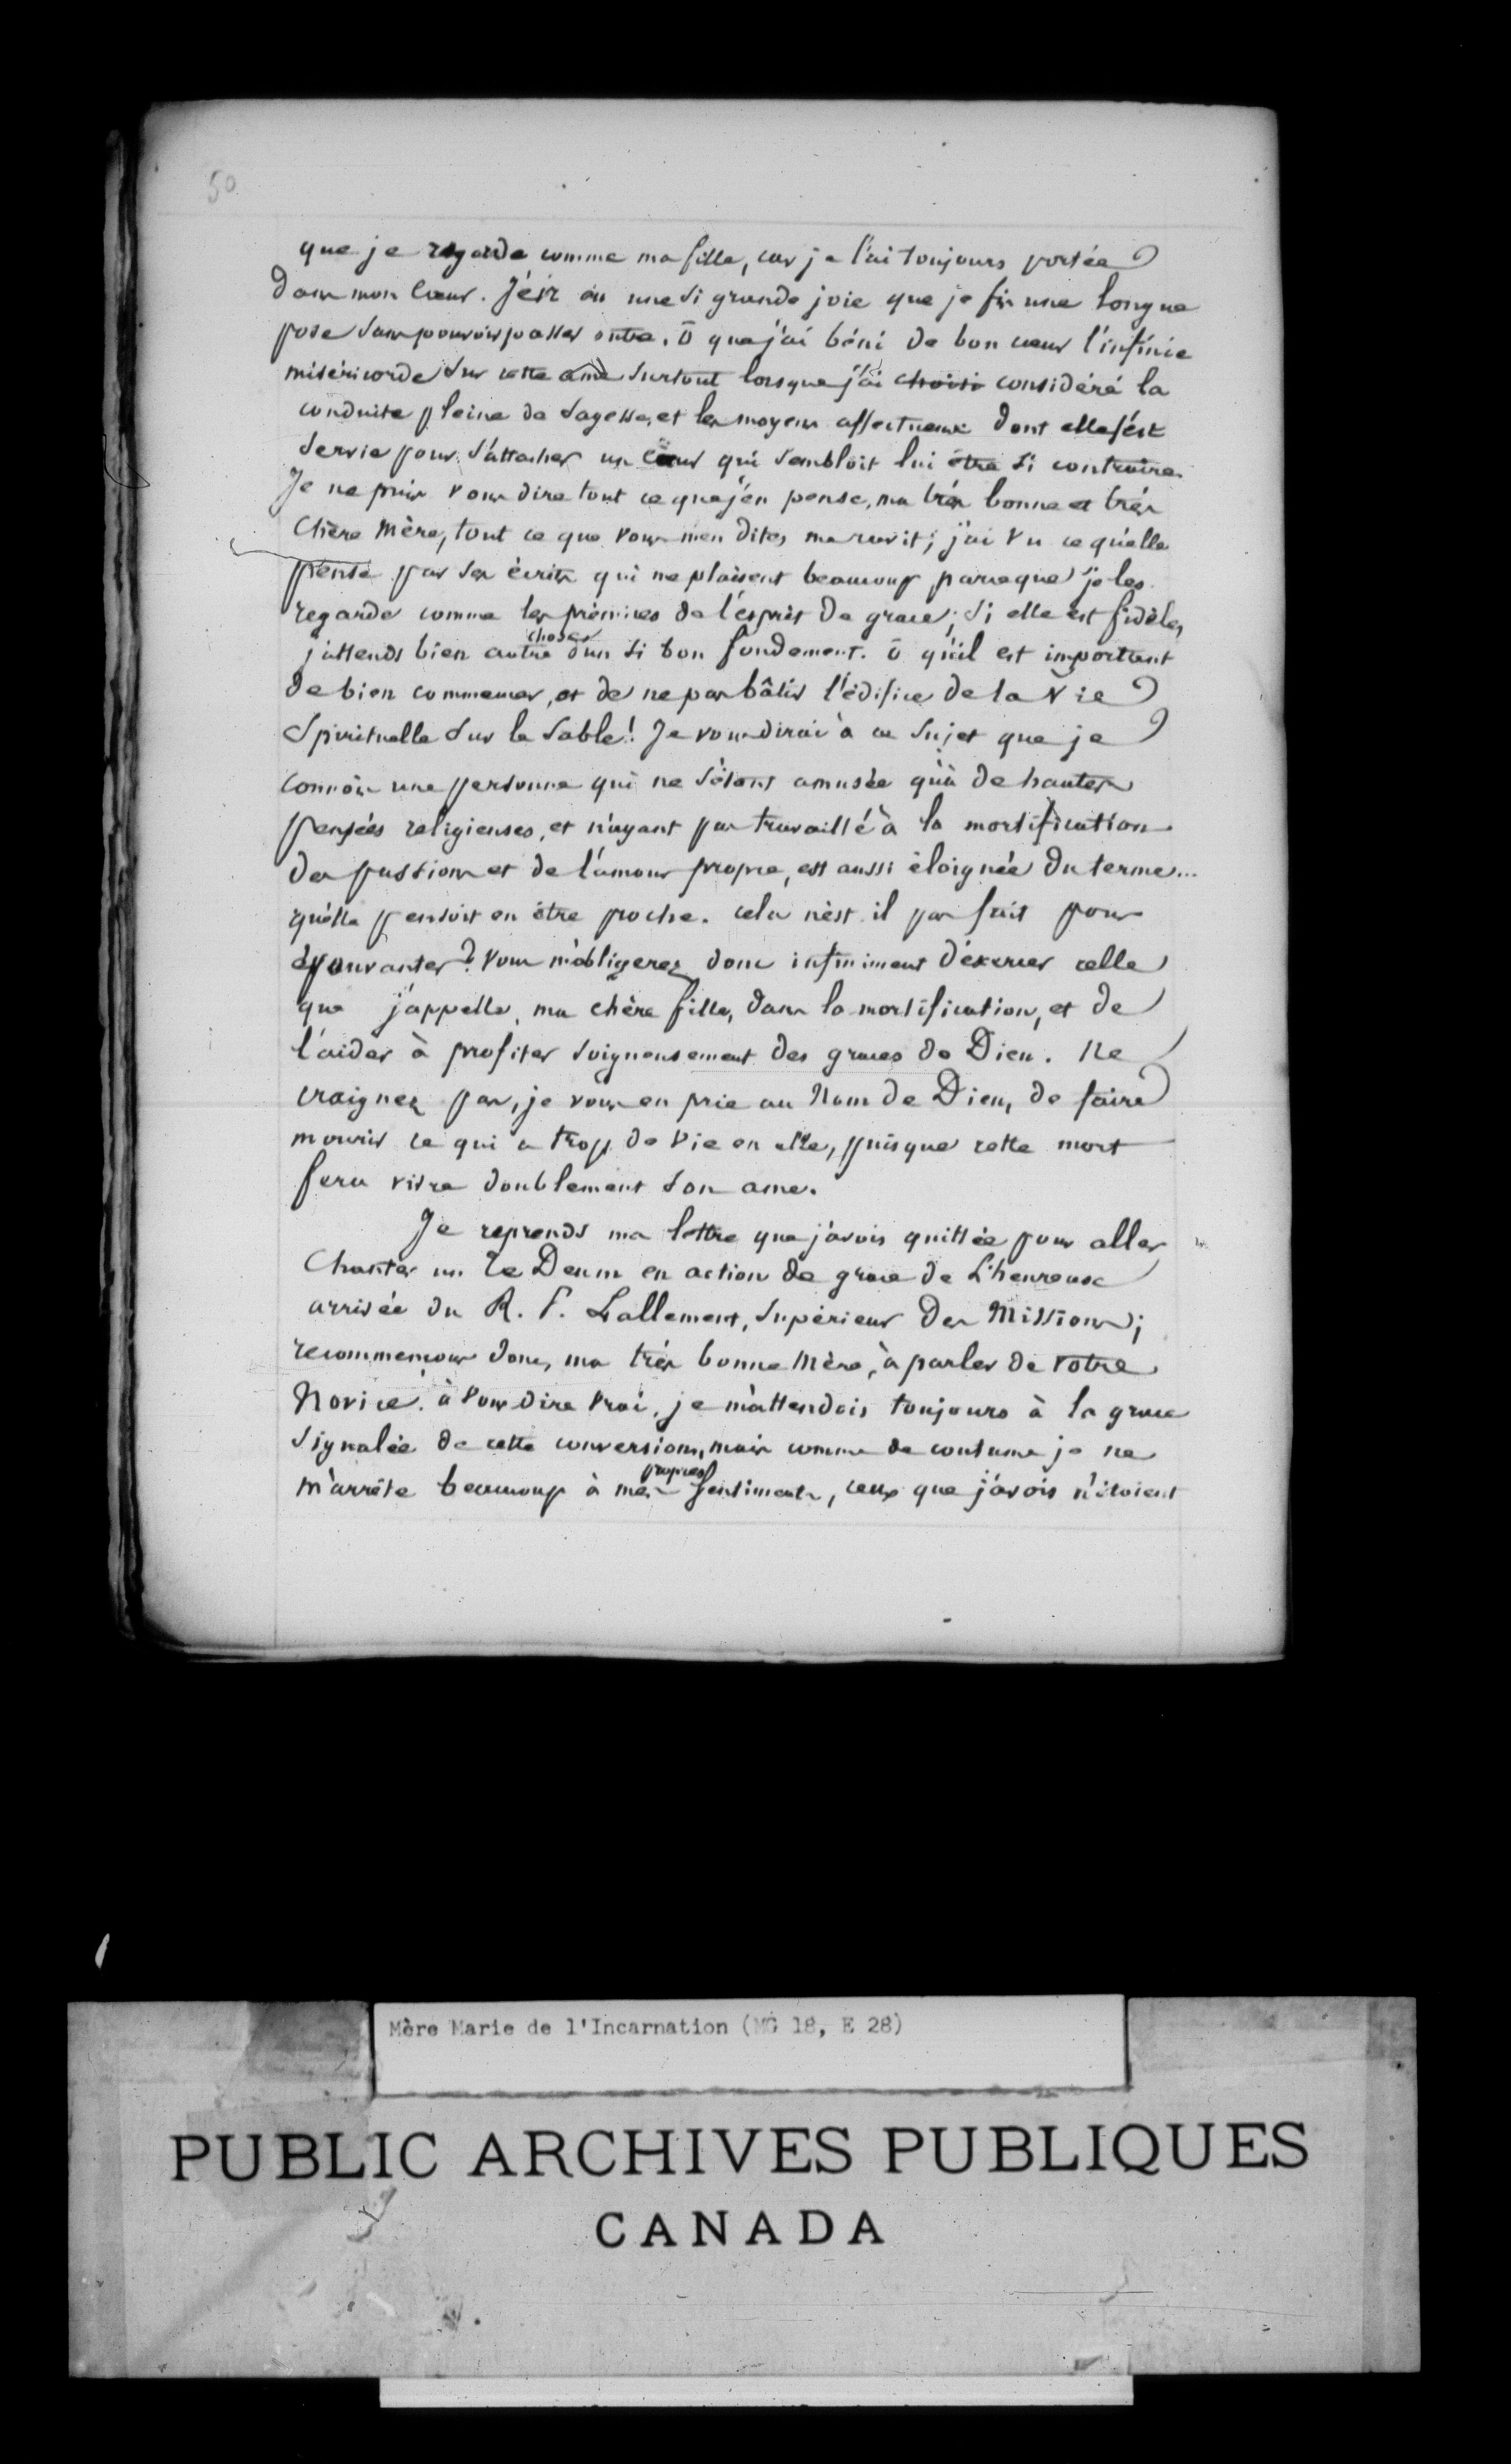 50
que je regarde comme ma fille, car je l'ai toujours portée
dans mon Cœur. J'en eu une si grande joie que je fis une longue
pose sans pouvoir passer outre. ô que j'ai béni de bon cœur l'infinie
miséricorde sur cette ame surtout lorsque j'ai choisi considéré la
conduite pleine de sagesse, et les moyens affectueux dont elle s'est
servie pour s'attacher un Cœur qui sembloit lui être si contraire.
Je ne puis vous dire tout ce que j'en pense, ma très bonne et très
Chère Mère, tout ce que vous m'en dites me ravit; j'ai vu ce qu'elle
pense par ses écrits qui me plaisent beaucoup parceque je les
regarde comme les prémices de l'esprit de grace; si elle est fidèle,
j'attends bien autre choses d'un si bon fondement. ô qu'il est important
de bien commencer, et de ne pas bâtir l'édifice de la Vie
Spirituelle sur le sable! Je vous dirai à ce sujet que je
connois une personne qui ne s'étant amusée qu'à de hautes
pensées religieuses, et n'ayant pas travaillé à la mortification
des passions et de l'amour propre, est aussi éloignée du terme...
qu'elle pensoit en être proche. cela n'est il pas fait pour
épouvanter? Vous m'obligerez donc infiniment d'exercer celle
que j'appelle, ma chère fille, dans la mortification, et de
l'aider à profiter soigneusement des graces de Dieu. Ne
craignez pas, je vous en prie au Nom de Dieu, de faire
mourir ce qui a trop de vie en elle, puisque cette mort
fera vivre doublement son ame.
Je reprends ma lettre que j'avois quittée pour aller
Chanter un Te Deum en action de grace de L'heureuse
arrivée du R. P. Lallement, Supérieur des Missions;
recommençons donc, ma très bonne Mère, à parler de votre
Novice. à vous dire vrai, je m'attendois toujours à la grace
signalée de cette conversion, mais comme de coutume je ne
m'arrête beaucoup à mes propres sentiments, ceux que j'avois n'étoient
Mère Marie de l'Incarnation (MG 18, E 28)
PUBLIC ARCHIVES PUBLIQUES
CANADA